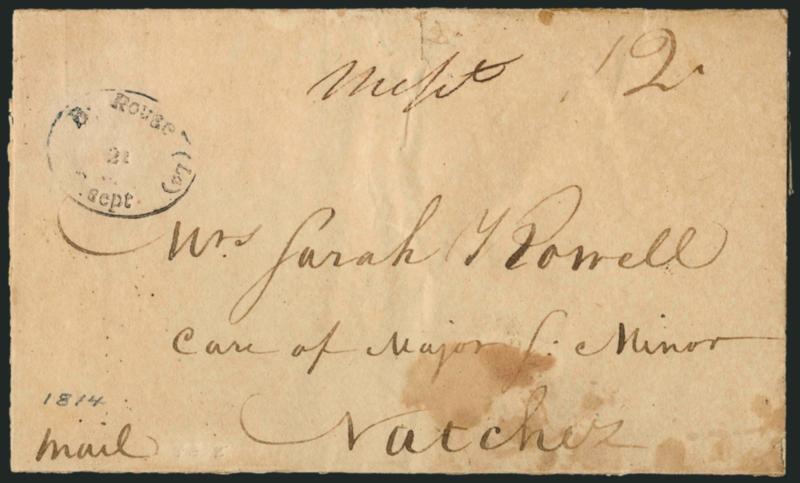 Misst 12
B. Rouge (La)
21
Sept
Mrs Sarah T Rowell
Care of Major S. Minor
Natchez
1814
Mail